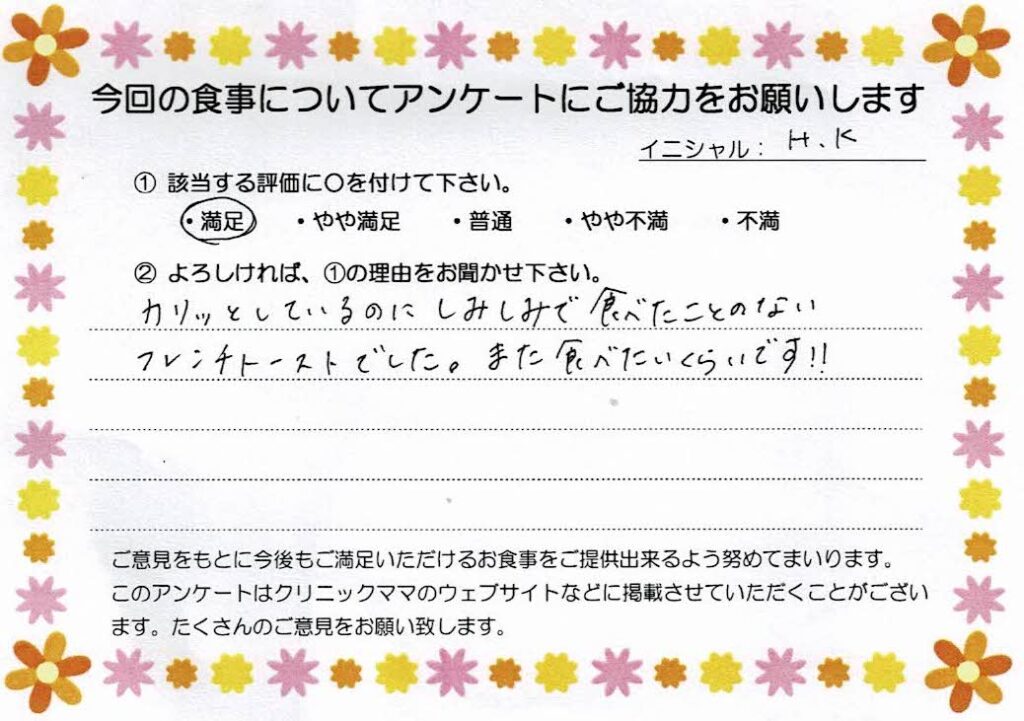 今回の食事についてアンケートにご協力をお願いします
イニシャル： H.K
① 該当する評価に〇を付けて下さい。
・満足 ・やや満足 ・普通 ・やや不満 ・不満
② よろしければ、①の理由をお聞かせ下さい。
カリッとしているのにしみしみで食べたことのない
フレンチトーストでした。また食べたいくらいです!!
ご意見をもとに今後もご満足いただけるお食事をご提供出来るよう努めてまいります。
このアンケートはクリニックママのウェブサイトなどに掲載させていただくことがござい
ます。たくさんのご意見をお願い致します。